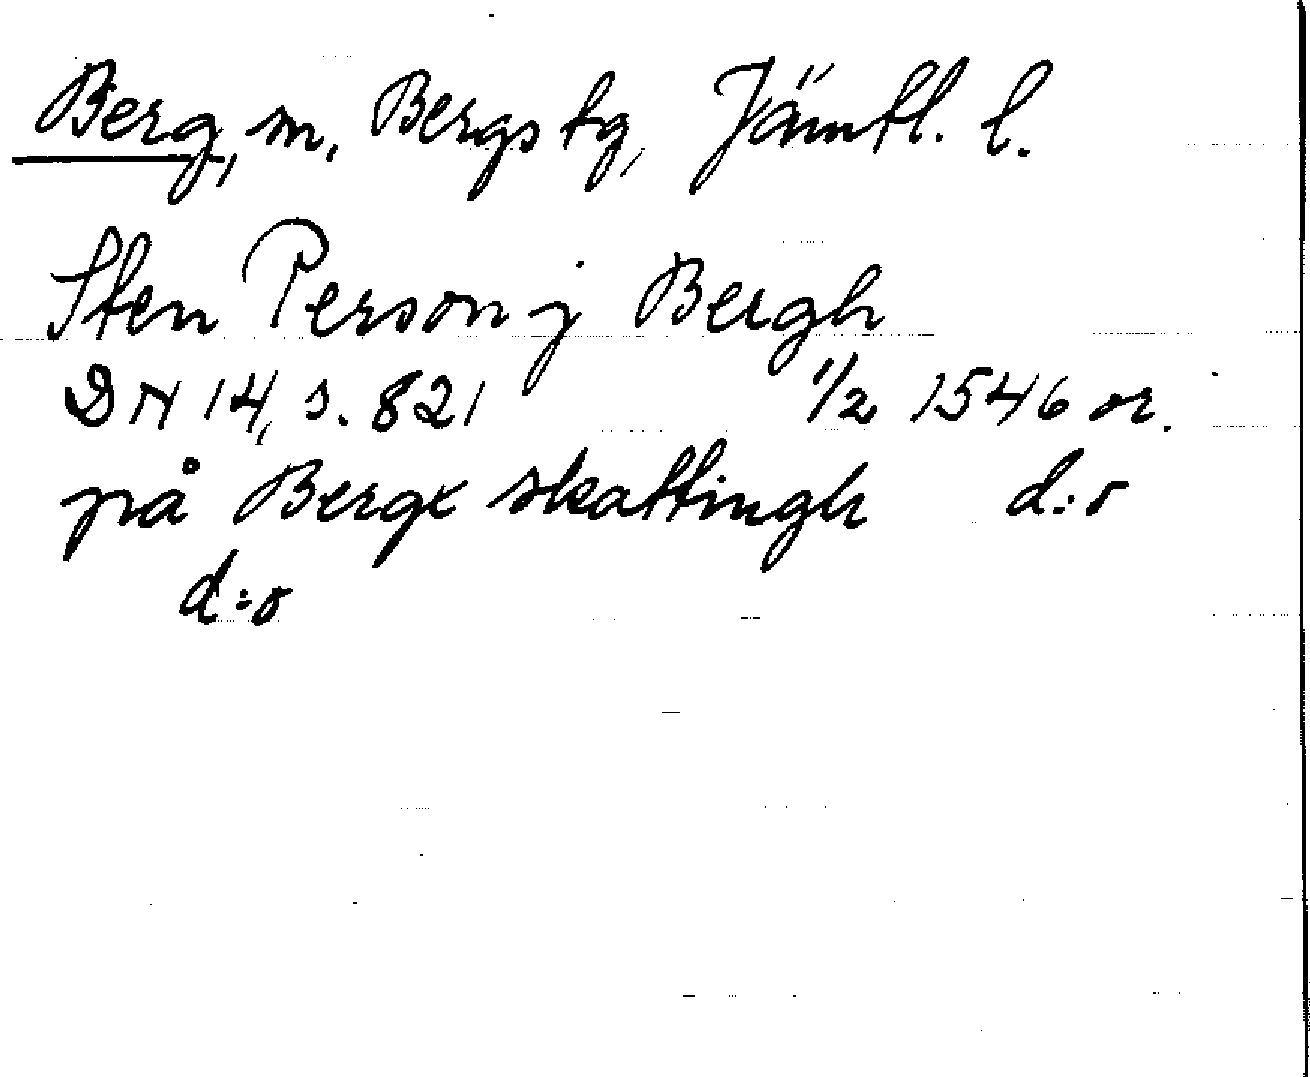 Berg, sn, Bergs tg, Jämtl. l.
Sten Person j Bergh
DN 14, s. 821 1/2 1546 or.
på Bergx skattingh d:o
d:o